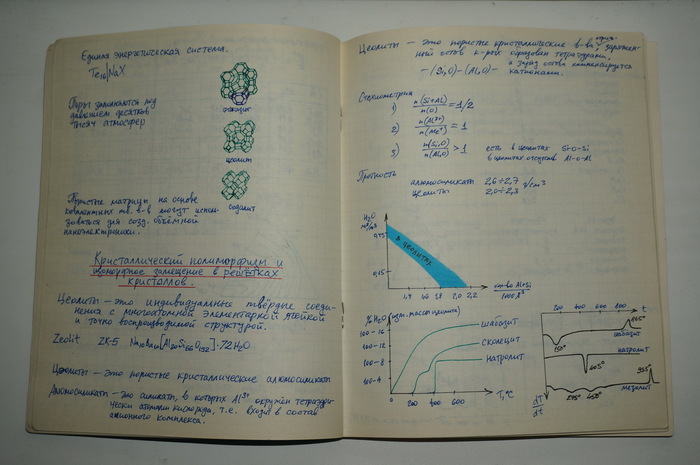 Единая энергетическая система.
Te10/NaX
фожазит
Поры заполняются под
давлением десятков
тысяч атмосфер
цеолит
Пористые матрицы на основе
ковалентных тв. в-в могут исполь
зоваться для созд. объёмной
наноэлектроники.
содалит
Кристаллический полиморфизм и
изоморфное замещение в решётках
кристаллов.
Цеолиты — это индивидуальные твёрдые соеди-
нения с многоатомной элементарной ячейкой
и точно воспроизводимой структурой.
Zeolit ZK-5
·72H2O
Цеолиты — это пористые кристаллические алюмосиликаты
Алюмосиликаты — это силикаты, в которых Al3+ окружён тетраэдри-
чески атомами кислорода, т.е. входит в состав
анионного комплекса.
Цеолиты — это пористые кристаллические в-ва,
ный остов к-рых образован тетраэдрами,
а заряд остова компенсируется
катионами.
Стехиометрия
1) n(Si+Al)/n(O) = 1/2
2) = 1
3) > 1 есть в цеолитах Si-O-Si
в цеолитах отсутств. Al-O-Al
Плотность алюмосиликаты 2,6÷2,7 г/см3
цеолиты 2,0÷2,3
H2O
в цеолитах
1,4 1,6 1,8 2,0 2,2
кол-во Al+Si
1000 Å3
% H2O (изм. массы цеолита)
100-16
100-12
100-8
100-4
шабазит
сколецит
натролит
0 200 400 600 T, °C
200 400 600 800 t
шабазит
865°
150°
натролит
405°
955°
мезолит
dT
dt